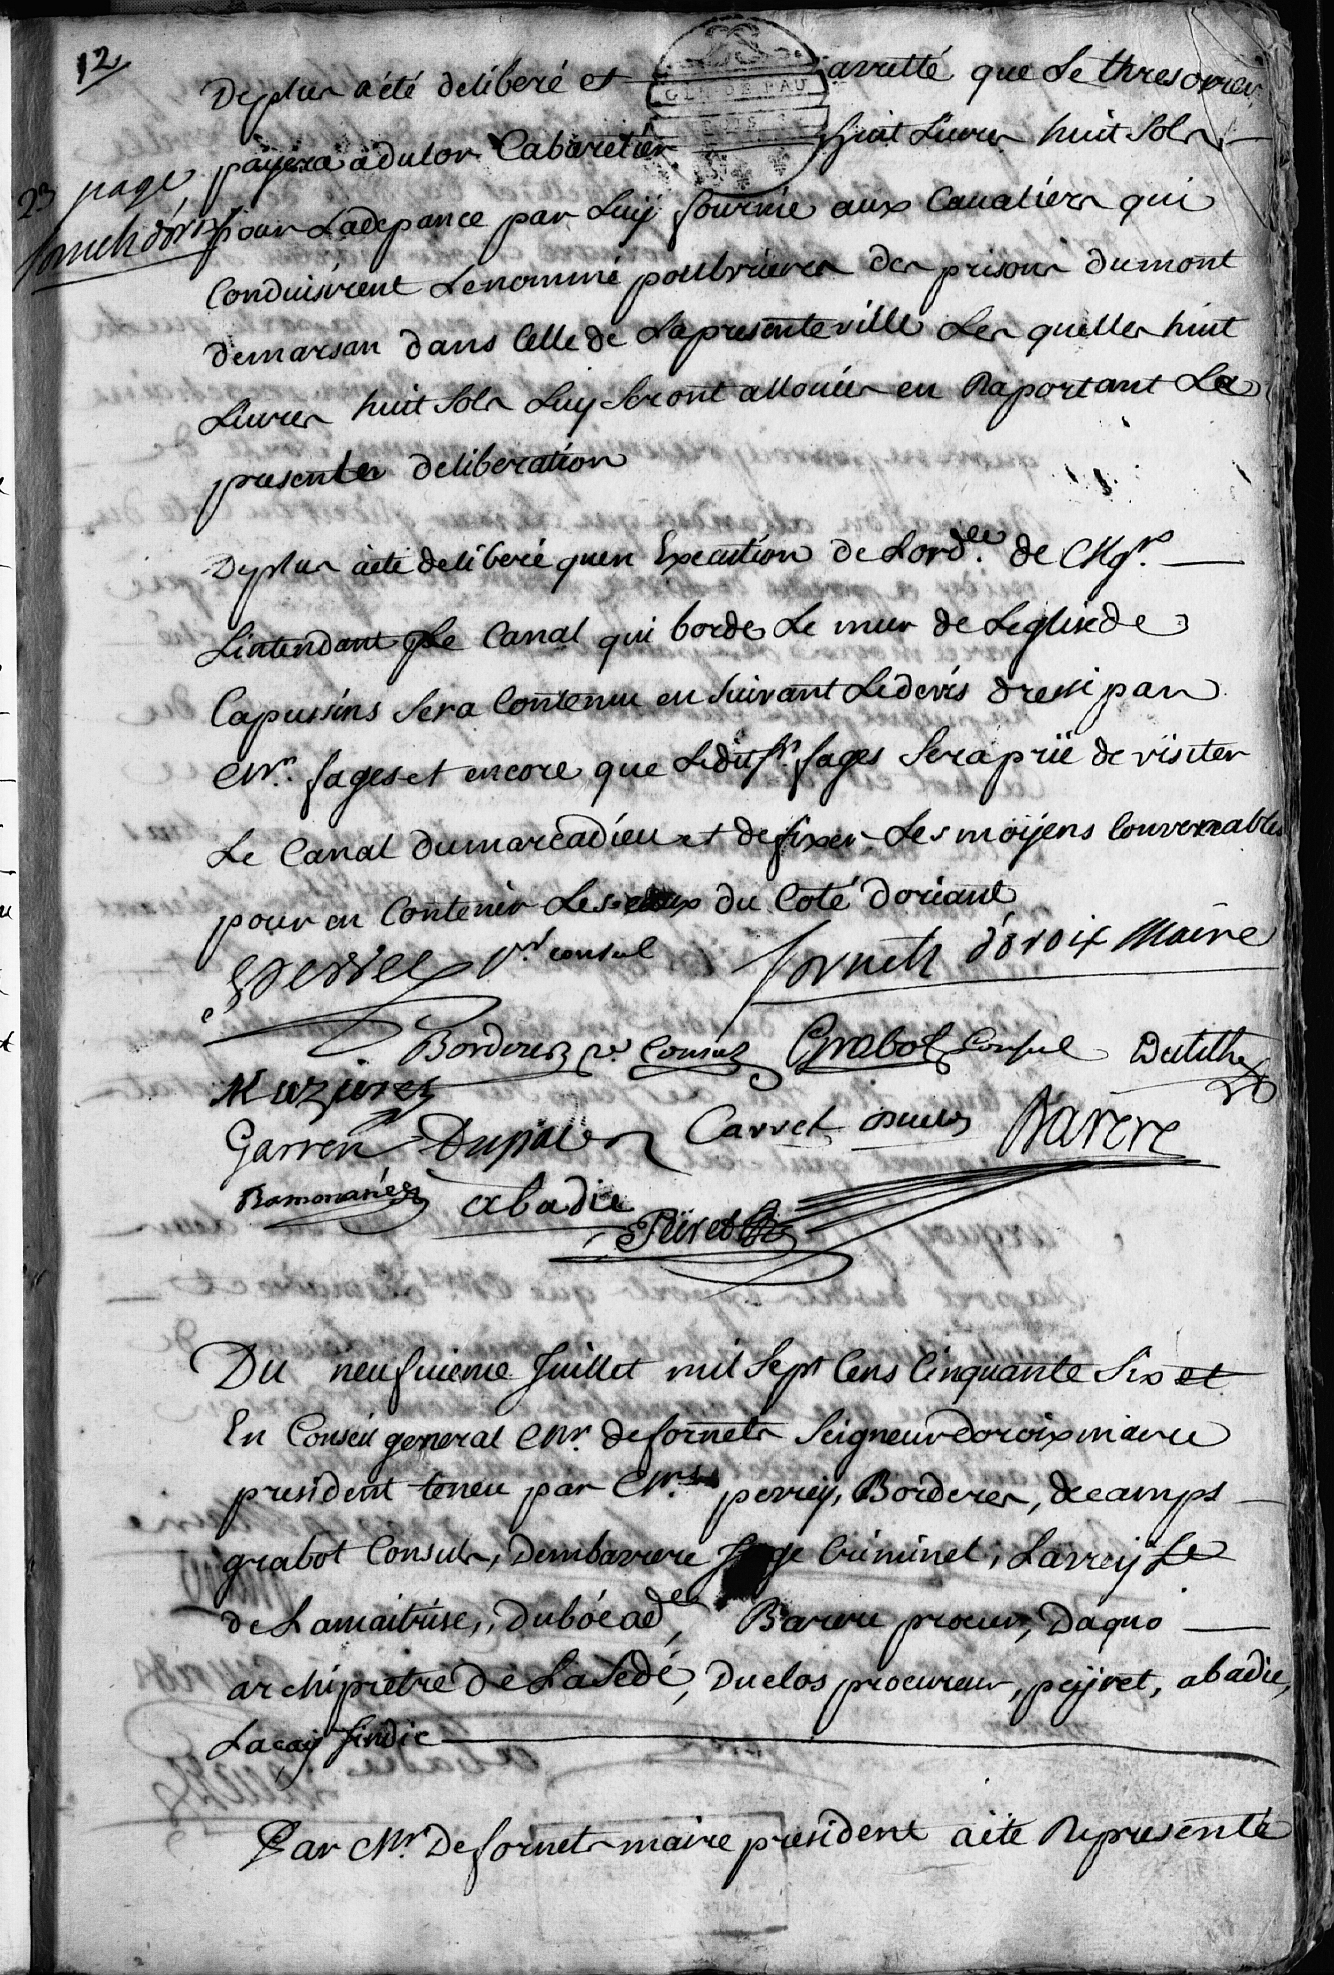 12
Deplus a été deliberé et arretté que Le thresorier
GEN DE PAU
payera a dulor Cabaretier huit Livres huit Sols
23 page
fornets doroix
pour Ladepance par Luy fournie aux Cavaliers qui
Conduisirent Lenommé poubrieres des prisons dumont
demarsan dans Celle de Lapresente ville Les quelles huit
Livres huit Sols Luy Seront allouées en Raportant La
presente deliberation
Deplus aété deliberé quen Execution de Lordce de Mgr
Lintendant Le Canal qui borde Le mur de Leglise de
Capussins Sera Contenu en Suivant Ledevis dressé par
Mr. fages et encore que Ledit Sr fages Sera prié de visiter
Le Canal dumarcadieu et defixer Les moyens Convenables
pour en Contenir Les eaux du Coté doriant
Perrey pr consul fornets d'oroix Maire
Borderes 2e Consul Grabot Consul Dutilh
Mazieres
Garren Dupat Carret Barere
Ramonarie abadie
Peÿret
Du neufvieme Juillet mil Sept Cens Cinquante Six et
En Conseil general Mr. defornets Seigneur doroix maire
president tenu par Mrs. perrey, Borderes, decamps
grabot Consuls, Dembarrere Juge Criminel, Larrey Lt
de Lamaitrise, Duboé ade, Barere procur, Daguo
archipretre de La Sede, Duclos procureur, peyret, abadie,
Lacay Sindic
Par Mr. Defornets maire president aété Representé